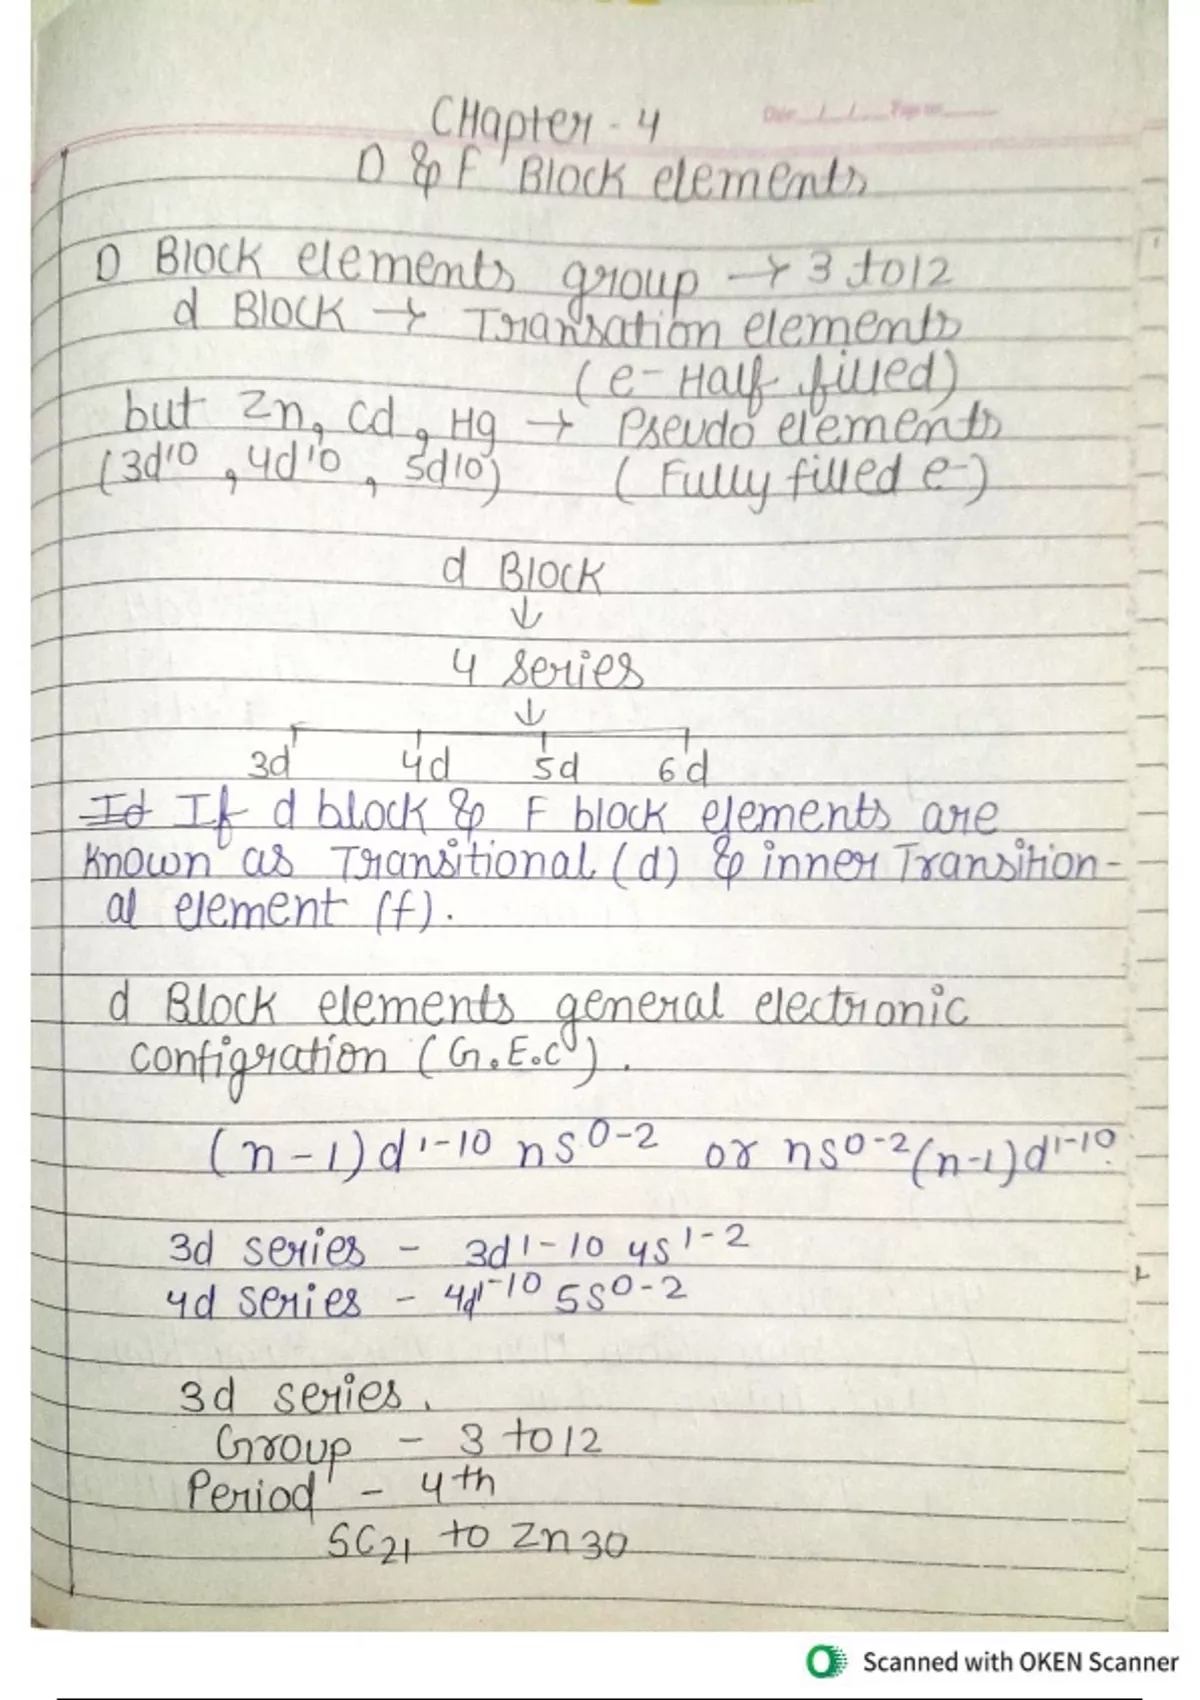 Date __/__/__ Page no. ____
CHapter - 4
D & F Block elements
D Block elements group → 3 to 12
d Block → Transation elements
(e- Half filled)
but Zn, Cd, Hg → Pseudo elements
(3d10, 4d10, 5d10) (Fully filled e-)
d Block
↓
4 series
↓
3d 4d 5d 6d
Id If d block & F block elements are
known as Transitional (d) & inner Transition-
al element (f).
d Block elements general electronic
configration (G.E.C).
(n-1)d1-10 ns0-2 or ns0-2(n-1)d1-10.
3d series - 3d1-10 4s1-2
4d series - 4d1-10 5s0-2
3d series.
Group - 3 to 12
Period - 4th
SC21 to Zn30
Scanned with OKEN Scanner